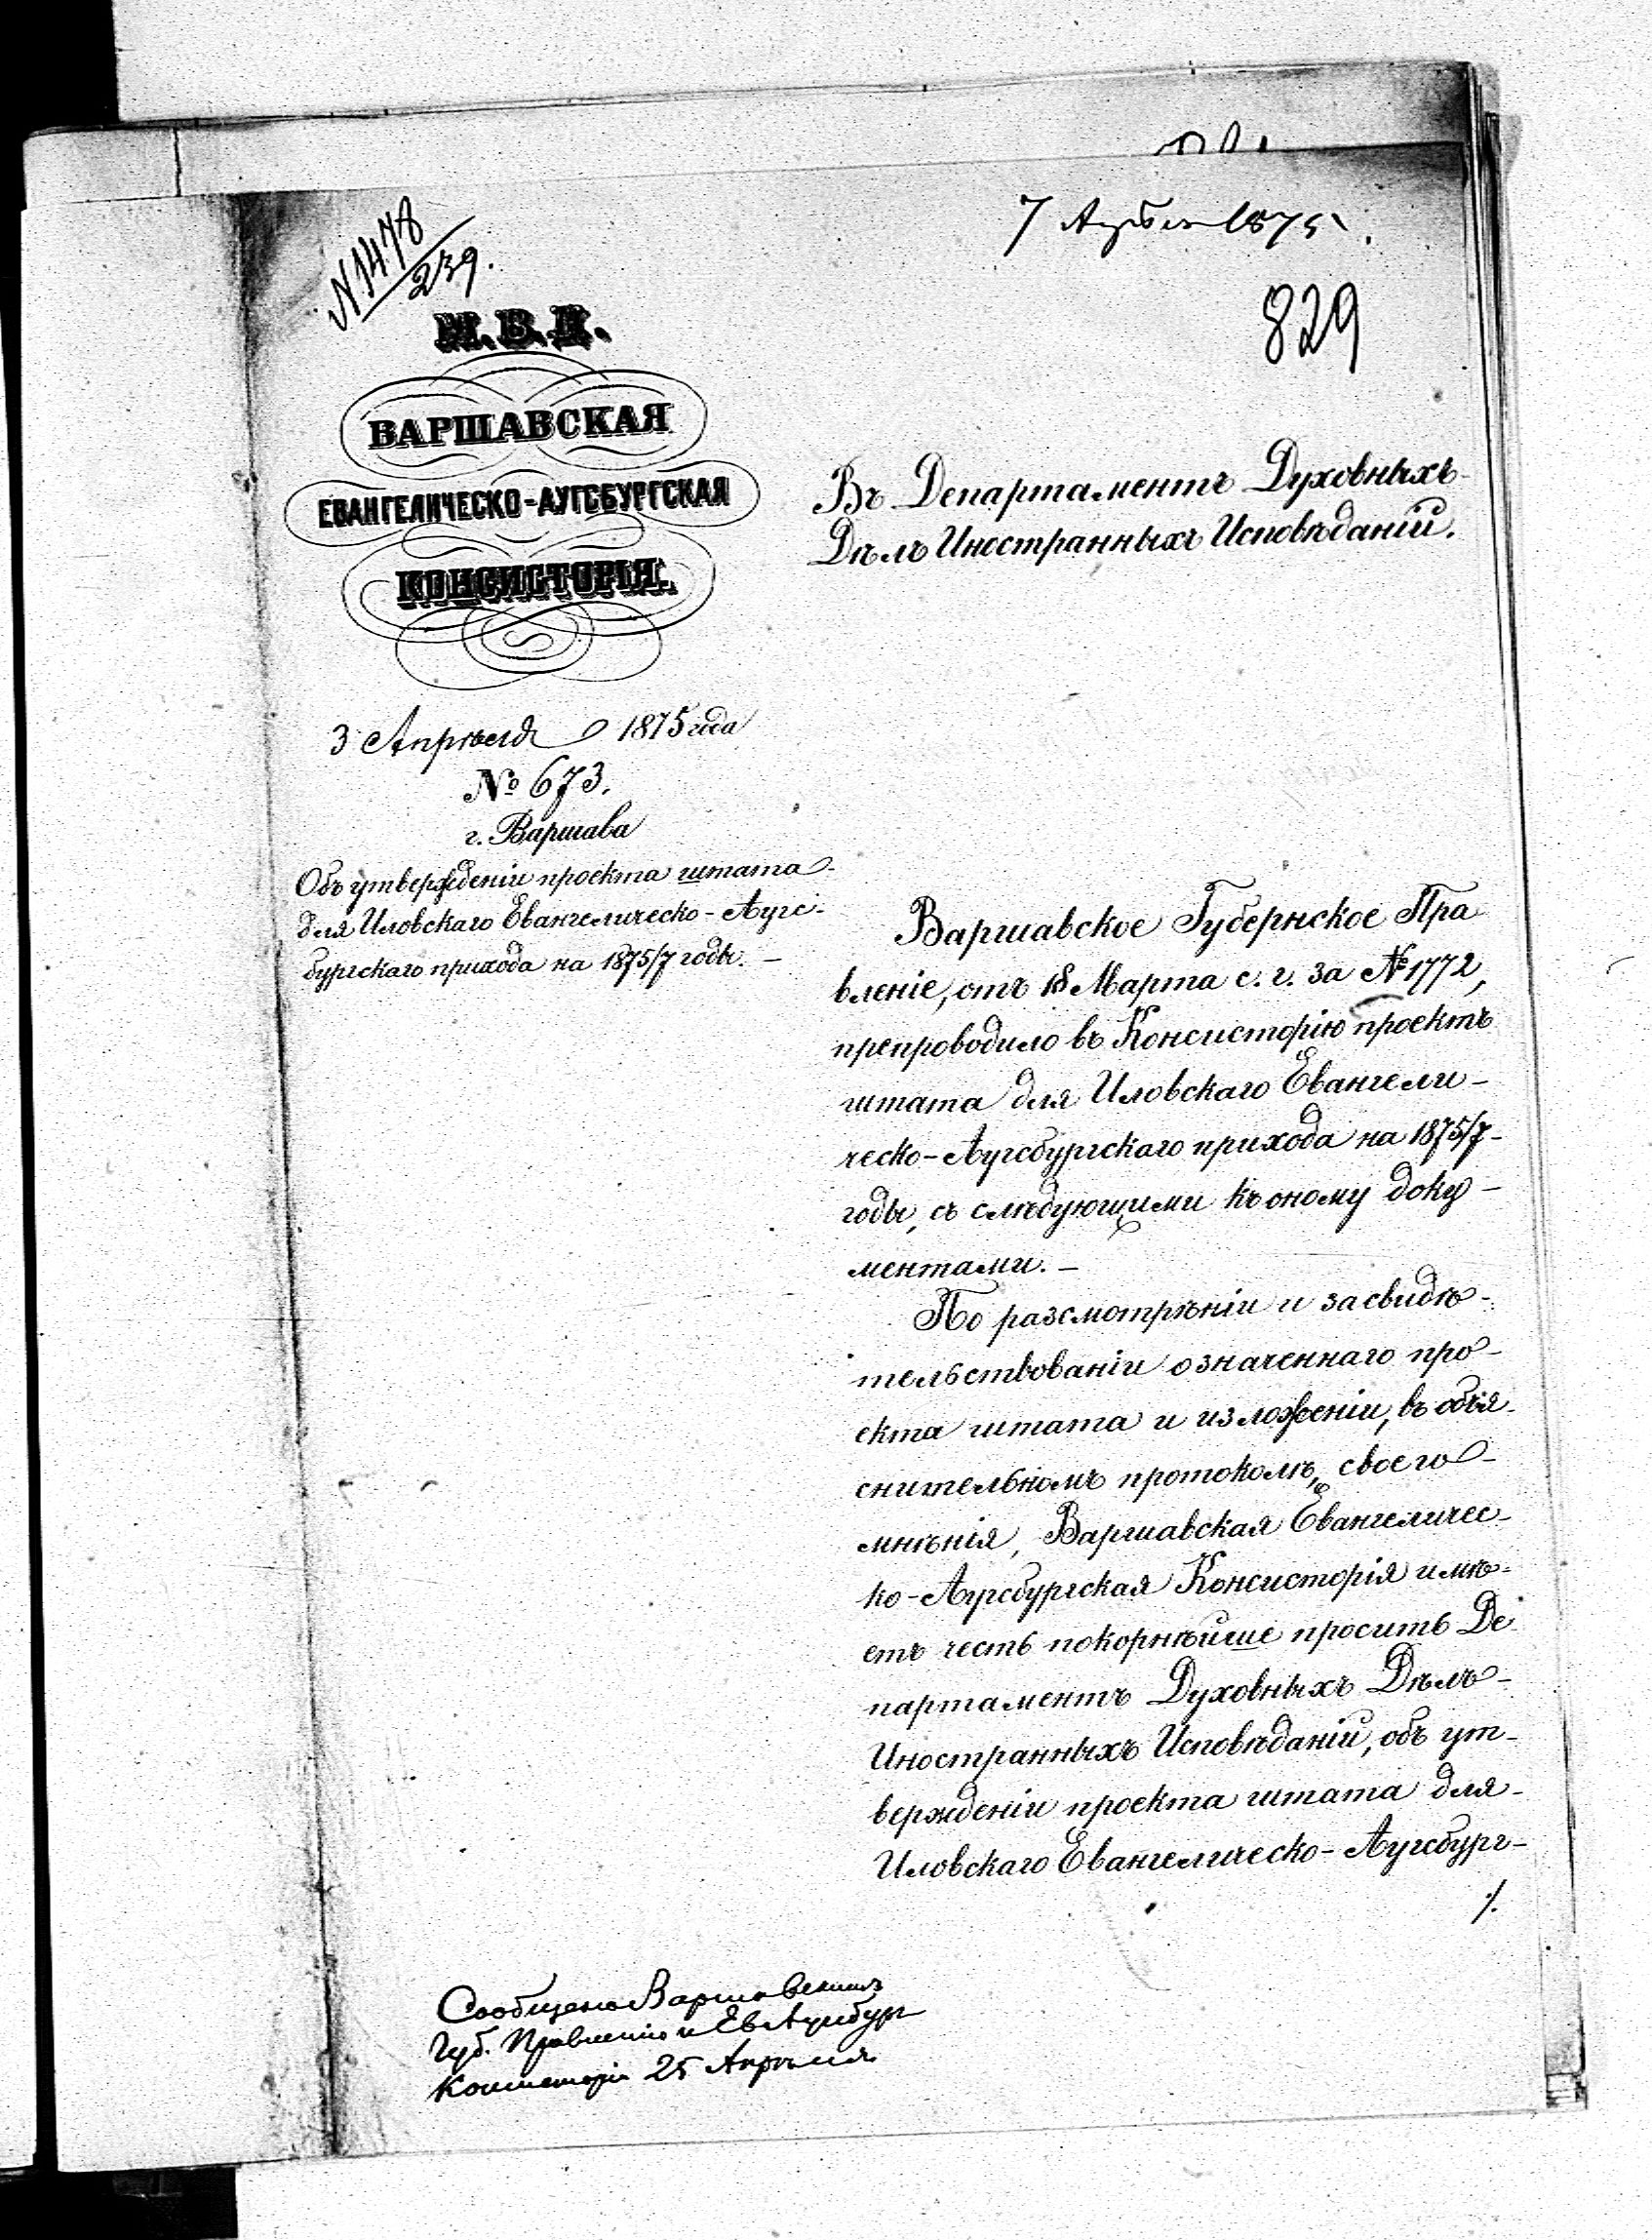 N 1478
239.
7 Апрѣля 1875.
829
М.В.Д.
ВАРШАВСКАЯ
ЕВАНГЕЛИЧЕСКО-АУГСБУРГСКАЯ
КОНСИСТОРІЯ.
3 Апрѣля 1875 года
№ 673.
г. Варшава
Объ утвержденіи проекта штата
для Иловскаго Евангелическо-Аугс-
бургскаго прихода на 1875/7 годы. –
Въ Департаментъ Духовныхъ
Дѣлъ Иностранныхъ Исповѣданій.
Варшавское Губернское Пра
вленіе, отъ 18 Марта с. г. за № 1772,
препроводило въ Консисторію проектъ
штата для Иловскаго Евангели-
ческо-Аугсбургскаго прихода на 1875/7-
годы, съ слѣдующими къ оному доку-
ментами. –
По разсмотрѣніи и засвидѣ-
тельствованіи означеннаго про-
екта штата и изложеніи, въ объя-
снительномъ протоколѣ, своего
мнѣнія, Варшавская Евангеличес-
ко-Аугсбургская Консисторія имѣ-
етъ честь покорнѣйше просить Де
партаментъ Духовныхъ Дѣлъ
Иностранныхъ Исповѣданій, объ ут-
вержденіи проекта штата для
Иловскаго Евангелическо-Аугсбург-
./.
Сообщено Варшавскимъ
Губ. Правленію и Ев Аугсбург
Консисторіи 25 Апрѣля